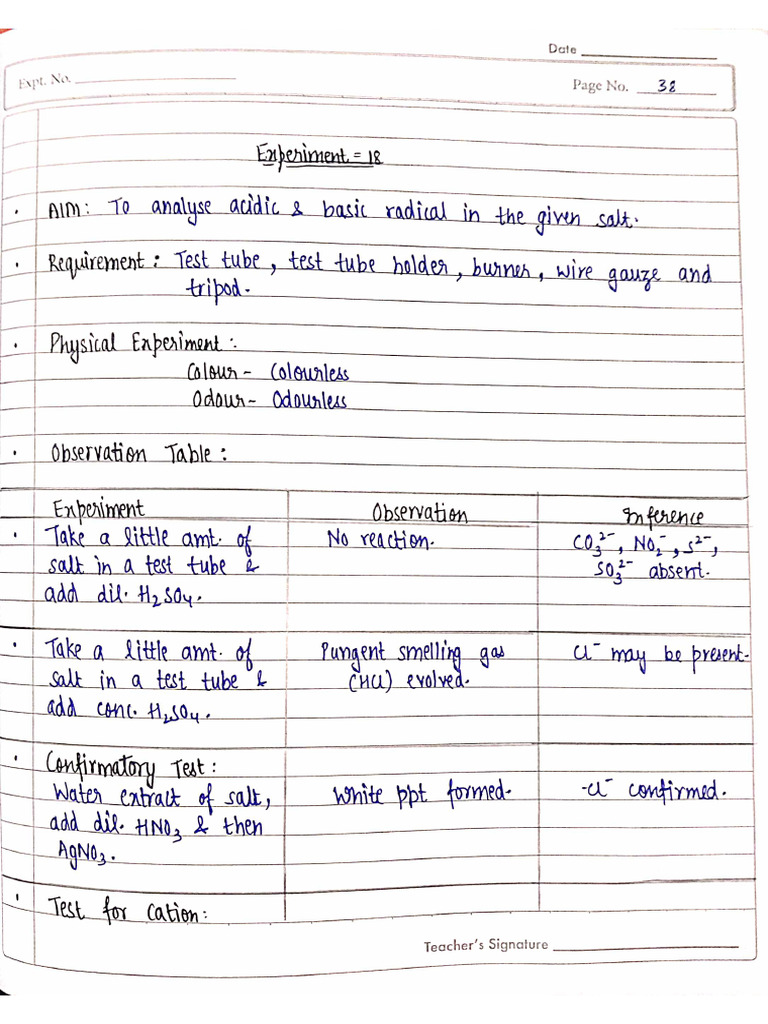 Date
Expt. No.
Page No. 38
Experiment = 18
• AIM: To analyse acidic & basic radical in the given salt.
• Requirement: Test tube, test tube holder, burner, wire gauze and
tripod.
• Physical Experiment:
Colour - Colourless
Odour - Odourless
• Observation Table:
Experiment Observation Inference
• Take a little amt. of No reaction. CO₃²⁻, NO₂⁻, S²⁻,
salt in a test tube & SO₃²⁻ absent.
add dil. H₂SO₄.
• Take a little amt. of Pungent smelling gas Cl⁻ may be present.
salt in a test tube & (HCl) evolved.
add conc. H₂SO₄.
• Confirmatory Test:
Water extract of salt, White ppt formed. -Cl⁻ confirmed.
add dil. HNO₃ & then
AgNO₃.
• Test for Cation:
Teacher's Signature